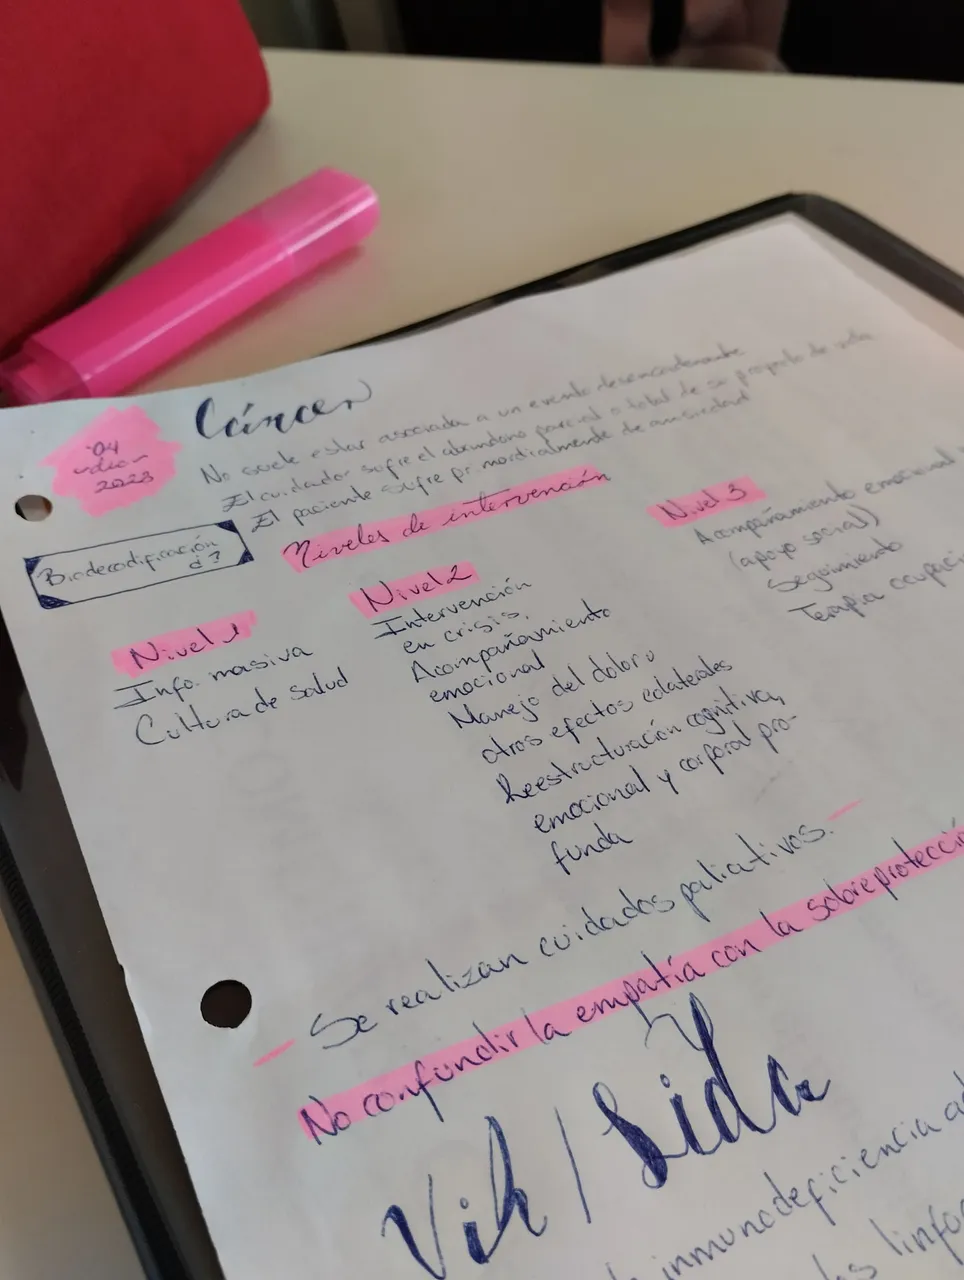 Cáncer
04
-dic-
2023
No suele estar asociada a un evento desencadenante
El cuidador sufre el abandono parcial o total de su proyecto de vida
El paciente sufre primordialmente de ansiedad
Biodecodificación
¿?
Niveles de intervención
Nivel 1
Info. masiva
Cultura de salud
Nivel 2
Intervención
en crisis.
Acompañamiento
emocional
Manejo del dolor u
otros efectos colaterales
Reestructuración cognitiva,
emocional y corporal pro-
funda
Nivel 3
Acompañamiento emocional
(apoyo social)
Seguimiento
Terapia ocupaci
Se realizan cuidados paliativos.
No confundir la empatía con la sobreprotecció
Vih / Sida
inmunodeficiencia